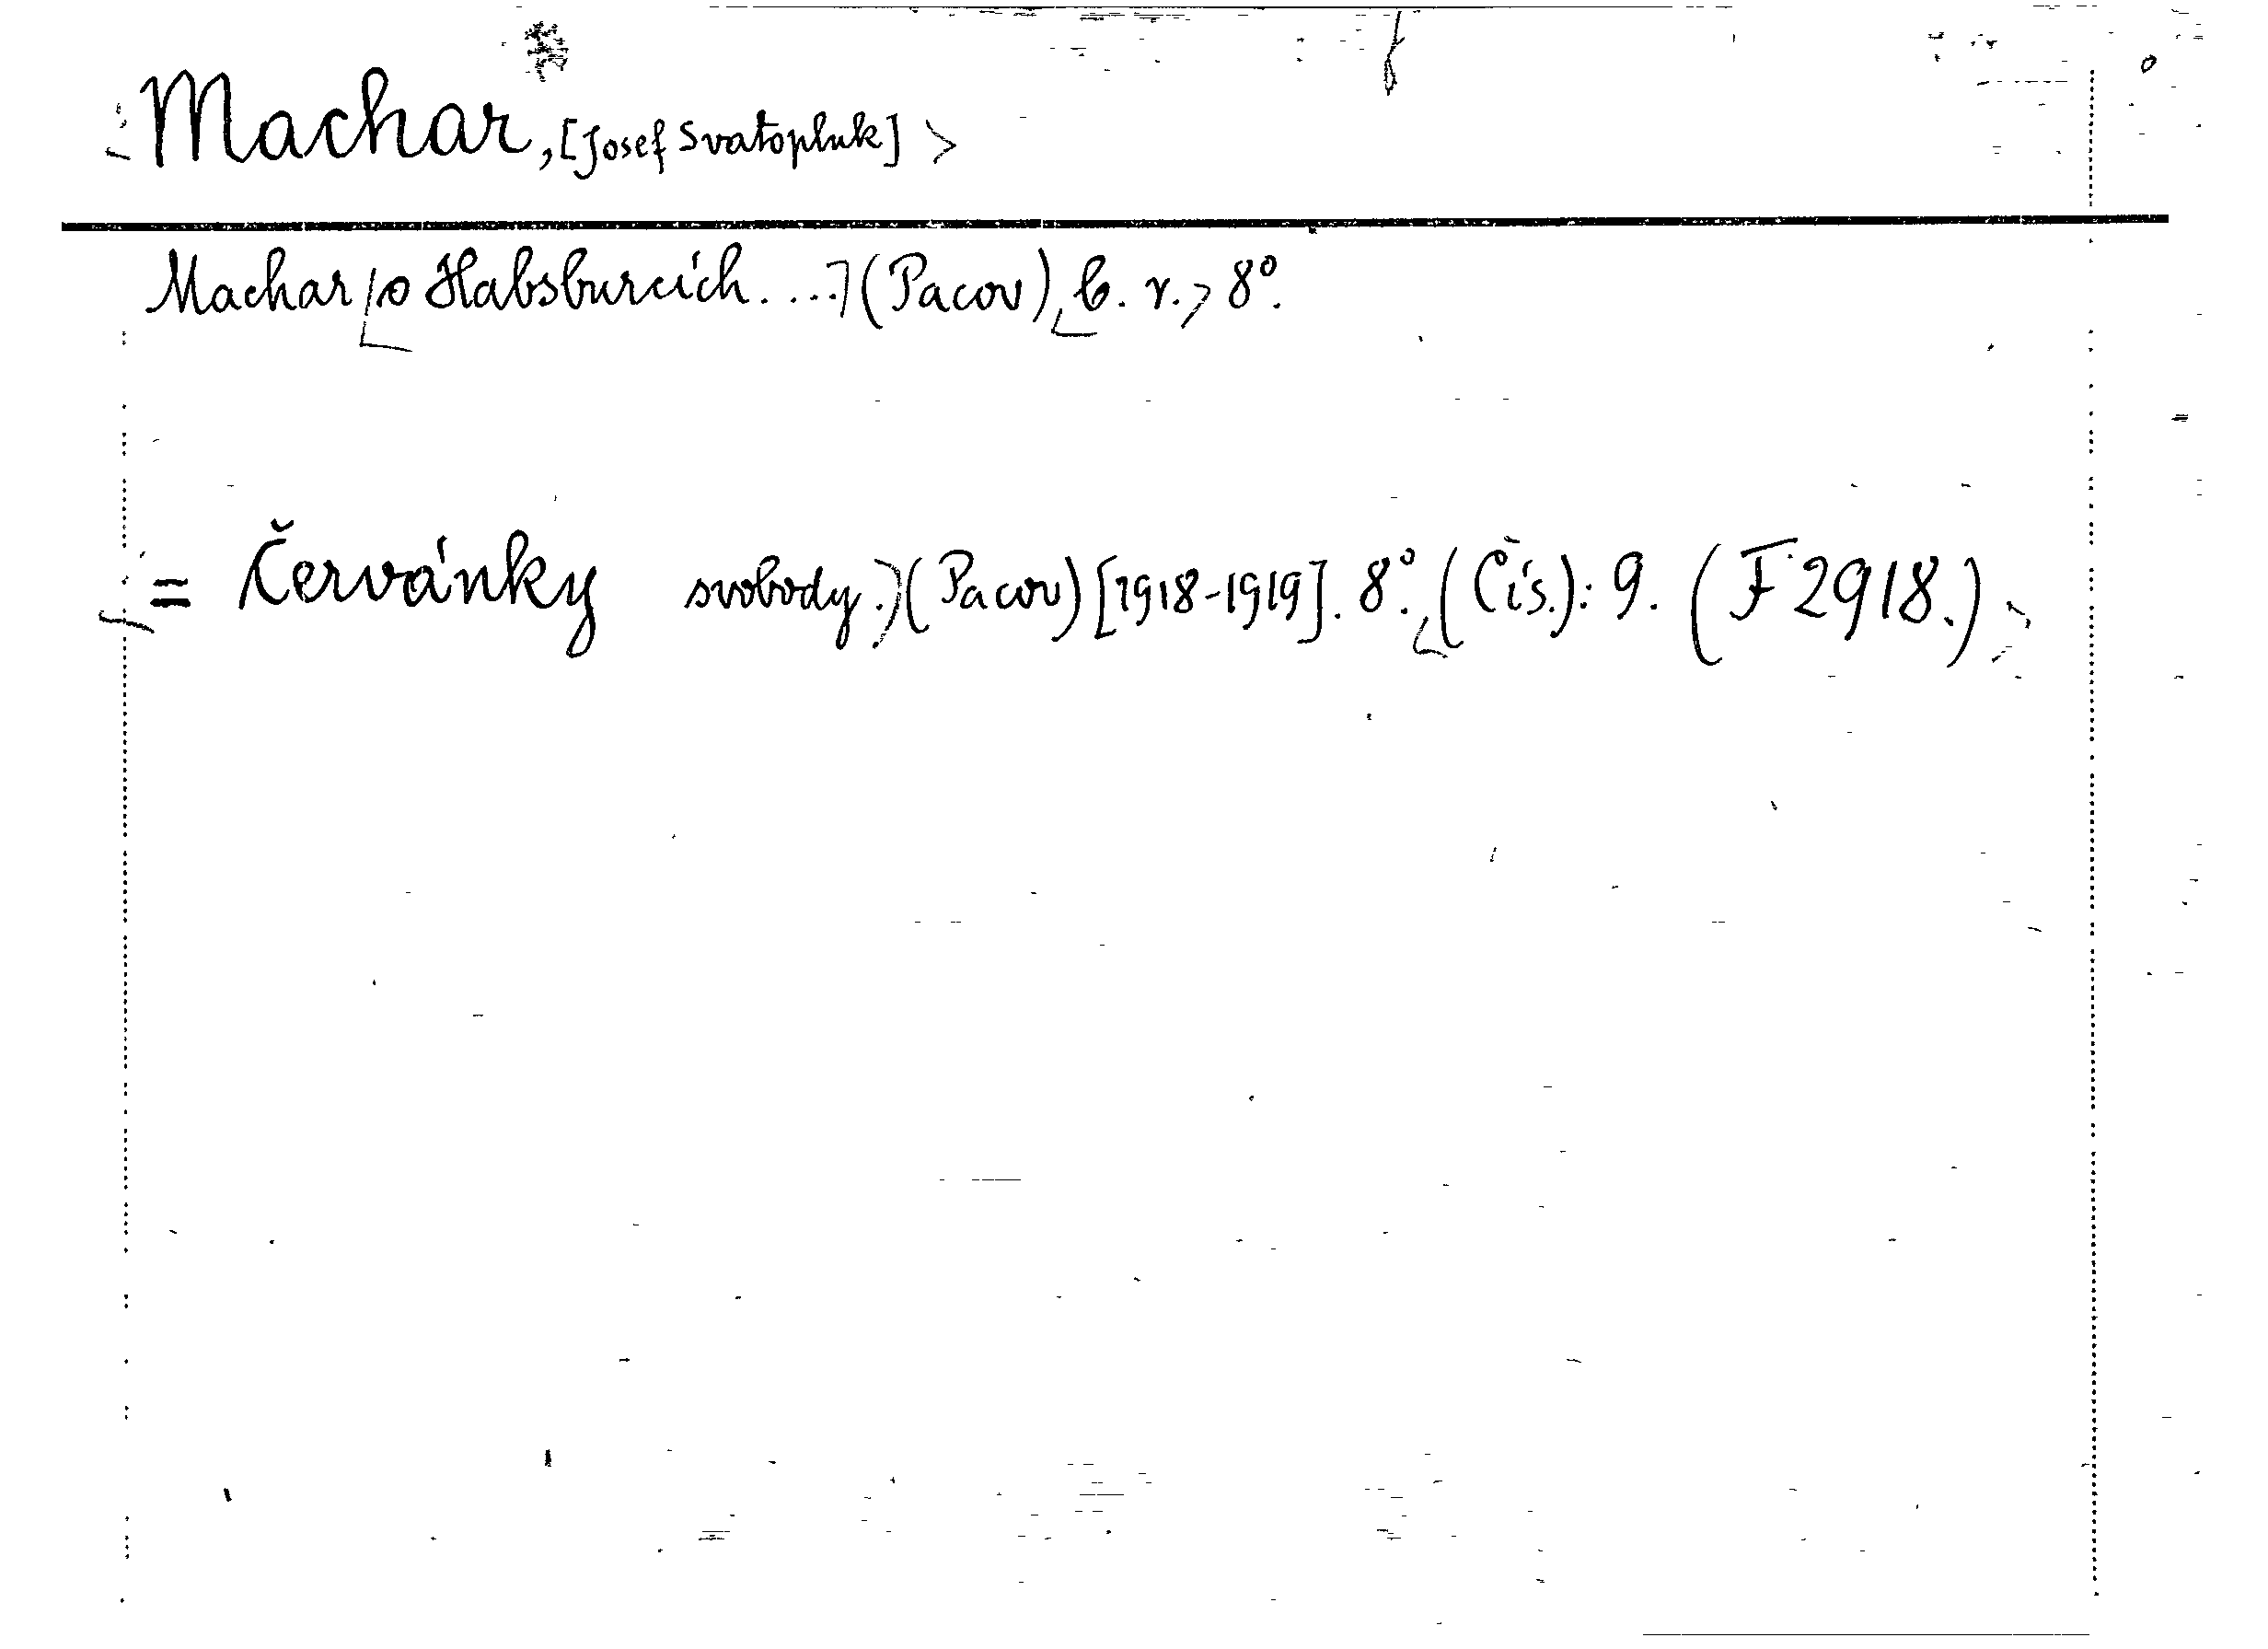 Machar, [Josef Svatopluk]
Machar o Habsburcích....] (Pacov), b. r., 8°.
= Červánky svobody.) (Pacov) [1918-1919]. 8°. (Čís.): 9. (F 2918.)